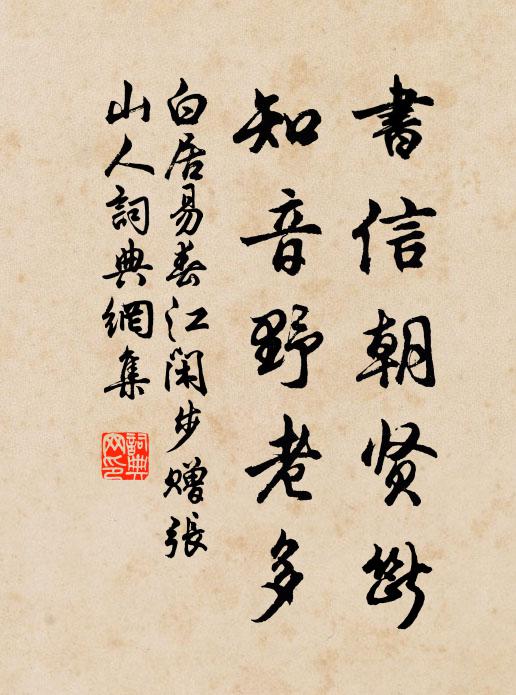 書信朝贤斷
知音野老多
白居易春江閑步赠張
山人詞典網集
詞典网印